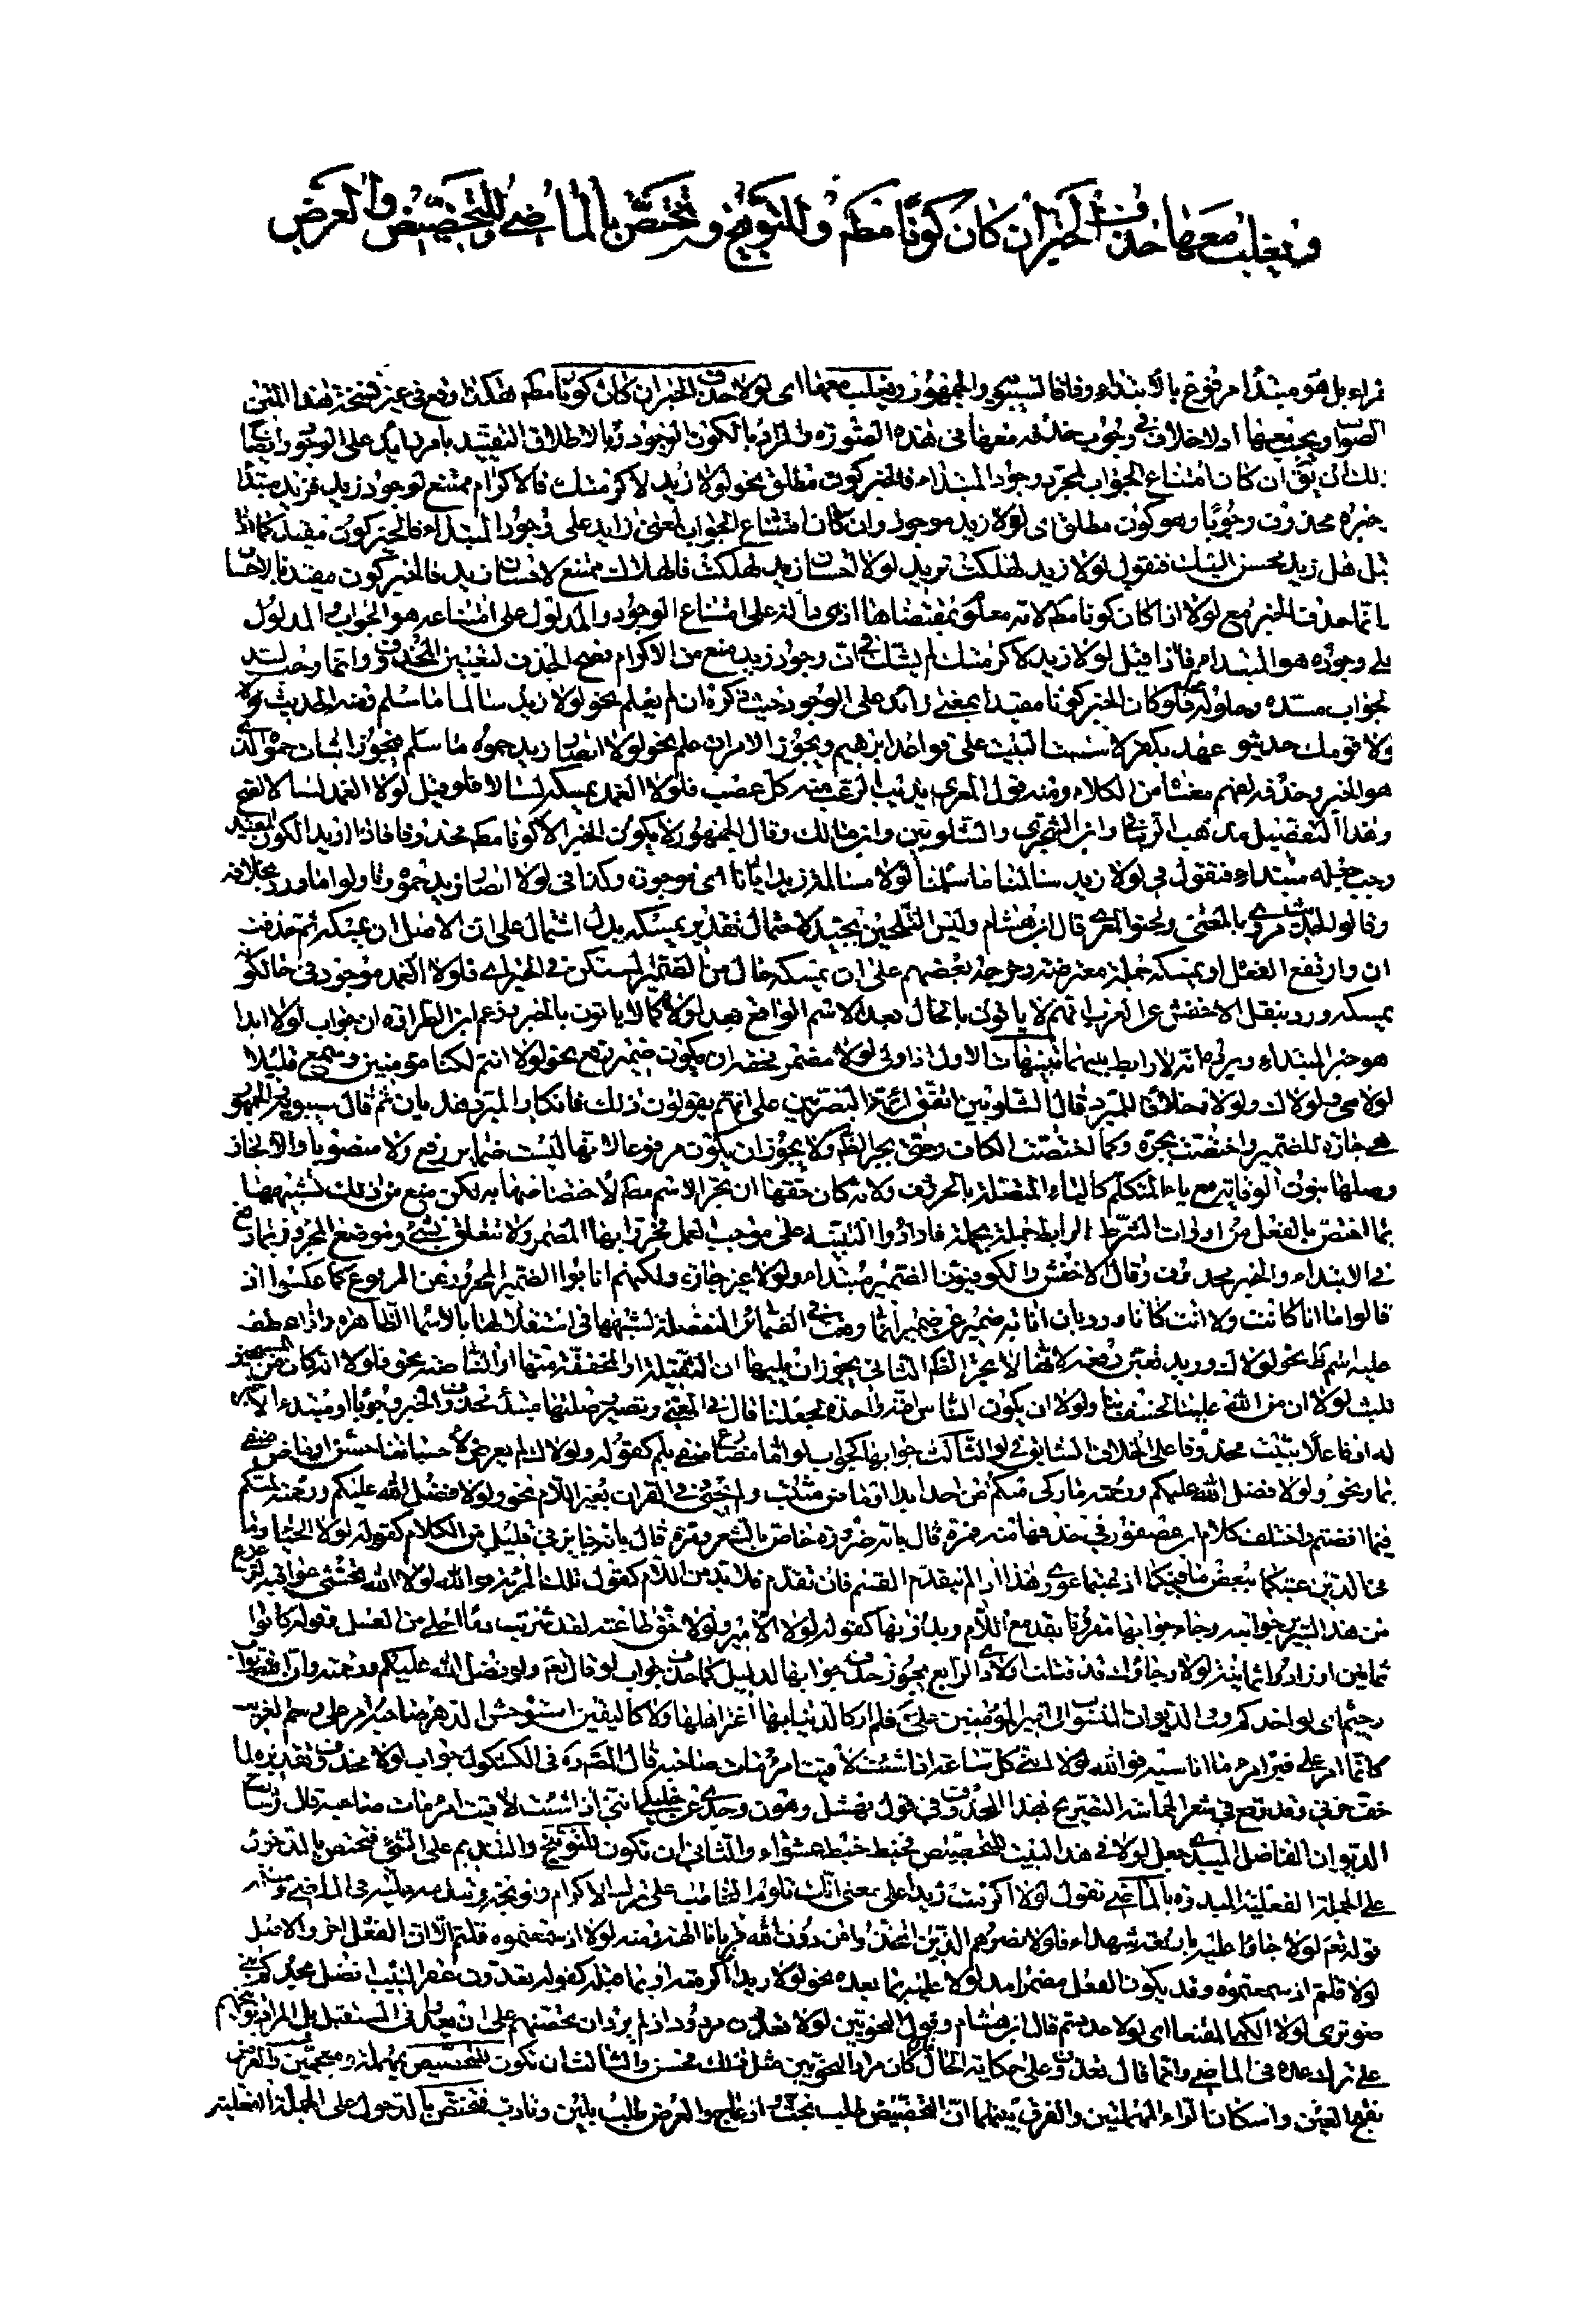 ويغلب معها حذف الخبر ان كان كونا مطم وللتوبيخ وتختص بالماضي وللتحضيض والعرض
بل هو مبتدا مرفوع بالابتداء وفاقا لسيبويه والجمهور ويغلب معها اى لولا حذف الخبر ان كان كونا مطم هكذا وقع فى غير نسخة هذا المتن
الصواب ويجب معها اذ لا خلاف في وجوب حذفه معها فى هذه الصورة والمراد بالكون الوجود وبالاطلاق التقييد بامر زايد على الوجود وايضاح
ذلك ان يق ان كان امتناع الجواب لمجرد وجود المبتداء فالخبر كون مطلق نحو لولا زيد لاكرمتك فالاكرام ممتنع لوجود زيد فزيد مبتدا
خبره محذوف وجوبا وهو كون مطلق اى لولا زيد موجود وان كان امتناع الجواب لمعنى زايد على وجود المبتداء فالخبر كون مقيد كما اذا
قيل هل زيد محسن اليك فتقول لولا زيد لهلكت تريد لولا احسان زيد لهلكت فالهلاك ممتنع لاحسان زيد فالخبر كون مقيد بالاحسان
انما حذف الخبر مع لولا اذا كان كونا مطم لانه معلوم بمقتضاها اذ هى دالة على امتناع لوجود والمدلول على امتناعه هو الجواب والمدلول
على وجوده هو المبتداء فاذا قيل لولا زيد لاكرمتك لم يشك فى ان وجود زيد منع من الاكرام فصح الحذف لتعيين المحذوف وانما وجب لسد
الجواب مسده وحلوله محله فلو كان الخبر كونا مقيدا بمعنى زائد على الوجود حيث ذكره ان لم يعلم نحو لولا زيد سالمنا ما سلم ومنه الحديث لولا
ولا قومك حديثو عهد بكفر لاسست البيت على قواعد ابرهيم ويجوز الامران ان علم نحو لولا انصار زيد حموه ما سلم فيجوز اثبات حموه الذى
هو الخبر وحذفه لفهم معناه من الكلام ومنه قول المعرى يذيب الرعب منه كل عضب فلولا الغمد يمسكه لسالا فلو قيل لولا الغمد لسالا لصح
وهذا التفصيل مذهب الرمانى وابن الشجرى والشلوبين وابن مالك وقال الجمهور لا يكون الخبر الا كونا مطم محذوفا فاذا اريد الكون المقيد
وجب جعله مبتداء فتقول فى لولا زيد سالمنا ما سلمنا لولا مسالمة زيد ايانا اى موجودة وكذا فى لولا انصار زيد حموه واولوا ما ورد بخلافه
وقالوا الحديث مروى بالمعنى ولحنوا المعرى قال ابن هشام وليس التلحين بجيد لاحتمال تقدير يمسكه بدل اشتمال على ان الاصل ان يمسكه ثم حذفت
ان وارتفع الفعل او يمسكه جملة معترضة وخرجه بعضهم على ان يمسكه حال من الضمير المستكن فى الخبر اى فلولا الغمد موجود فى حال كونه
يمسكه ورد بنقل الاخفش عن العرب انهم لا ياتون بالحال بعد الاسم الواقع بعد لولا كما لا ياتون بالخبر وزعم ابن الطراوة ان جواب لولا ابدا
هو خبر المبتداء ويرده انه لا رابط بينهما تنبيهات الاول اذا ولى لولا مضمر فحقه ان يكون ضمير رفع نحو لولا انتم لكنا مؤمنين وسمع قليلا
لولاى ولولاك ولولاه خلافا للمبرد قال الشلوبين اتفق ائمة البصريين على انهم يقولون ذلك فانكار المبرد هذيان ثم قال سيبويه والجمهور
هى جارة للضمير واختصت بجره وكما اختصت الكاف وحتى بجر الظاهر ولا يجوز ان يكون مرفوعا لانها ليست ضماير رفع ولا منصوبا والا لجاز
وصلها بنون الوقاية مع ياء المتكلم كالياء المتصلة بالحروف ولانه كان حقها ان تجر الاسم مطم لاختصاصها به لكن منع من ذلك شبهها
بما اختص بالفعل من ادوات الشرط الرابط جملة بجملة فارادوا التنبيه على موجب العمل فجروا بها المضمر ولا تتعلق بشئ وموضع المجرور بها رفع
فى الابتداء والخبر محذوف وقال الاخفش والكوفيون الضمير مبتداء ولولا غير جارة ولكنهم انابوا الضمير المجرور عن المرفوع كما عكسوا اذ
قالوا ما انا كانت ولا انت كانا ورد بان انابة ضمير عن ضمير انما وقعت فى الضمائر المنفصلة لشبهها فى استقلالها بالاسماء الظاهرة واذا عطف
عليه اسم ظ نحو لولاك وزيد تعين رفعه لانها لا تجر الظ الثانى يجوز ان يليها ان الثقيلة او المخففة منها او الناصبة نحو فلولا انه كان من المسبحين
للبث لولا ان من الله علينا لخسف بنا ولولا ان يكون الناس امة واحدة لجعلنا قال فى المغنى وتصير صلتها مبتدأ محذوف الخبر وجوبا او مبتداء لا خبر
له او فاعلا بثبت محذوفا على الخلاف السابق فى لو الثالث جوابها كجواب لو اما مضارع منفى بلم كقوله ولولاك لم يعرض لاحسابنا حسن او ماض منفى
بما ونحو ولولا فضل الله عليكم ورحمته ما زكى منكم من احد ابدا او ماض مثبت ولم يجئ فى القرآن بغير اللام نحو ولولا فضل الله عليكم ورحمته لمسكم
فيما افضتم واختلف كلام ابن عصفور فى حذفها منه فمرة قال بانه ضرورة خاص بالشعر ومرة قال بانه جايز فى قليل من الكلام كقوله لولا الحياء وما
فى الدين عبتكما ببعض ما فيكما اذ عبتما عورى وهذا اذا لم يتقدم القسم فان تقدم فلا بد من اللام كقول تلك المرئة فوالله لولا الله تخشى عواقبه لزعزع
من هذا السرير جوانبه وجاء جوابها مقرونا بقد مع اللام وبدونها كقوله لولا الامير ولولا حق طاعته لقد شربت دما احلى من العسل وقوله كانوا
ثمانين او زادوا ثمانية لولا رجاؤك قد قتلت اولادى الرابع يجوز حذف جوابها لدليل كما حذف جواب لو قال تعم ولولا فضل الله عليكم ورحمته وان الله تواب
رحيم اى لواخذكم وفى الديوان المنسوب الى امير المؤمنين على فلم ار كالدنيا بها اغتر اهلها ولا كاليقين استوحش الدهر صاحبه امر على رسم القريب
كانما امر على قبر امرء ما اناسبه فوالله لولا اننى كل ساعة اذا شئت لاقيت امرء مات صاحبه قال المص ره فى الكشكول جواب لولا محذوف وتقديره لما
خف حزنى وقد وقع فى شعر الحماسة التصريح بهذا المحذوف وفى قول نهشل وهون وجدى عن خليلى اننى اذا شئت لاقيت امرء مات صاحبه قال شارح
الديوان الفاضل الميبدى جعل لولا فى هذا البيت للتحضيض فخبط خبط عشواء والثانى ان تكون للتوبيخ والتنديم على الشئ فتختص بالدخول
على الجملة الفعلية المبدوة بالماضى تقول لولا اكرمت زيدا على معنى انك تلوم المخاطب على ترك الاكرام وتوبخه وتنديمه عليه فى الماضى ومنه
قوله تعم لولا جاؤا عليه باربعة شهداء فلولا نصرهم الذين اتخذوا من دون الله قربانا آلهة ومنه لولا اذ سمعتموه قلتم الا ان الفعل اخر والاصل
لولا قلتم اذ سمعتموه وقد يكون الفعل مضمرا مدلولا عليه بما بعده نحو لولا زيدا اكرمته او بما قبله كقوله تعدون عقر النيب افضل مجدكم بنى
ضوطرى لولا الكمى المقنعا اى لولا عددتم قال ابن هشام وقول النحويين لولا تعدون مردود اذ لم يرد ان يحضهم على ان يعدوا فى المستقبل بل المراد توبيخهم
على ترك عده فى الماضى وانما قال تعدون على حكاية الحال فان كان مراد النحويين مثل ذلك فحسن والثالث ان تكون للتحضيض بمهملة ومعجمتين والعرض
بفتح العين واسكان الراء المهملتين والفرق بينهما ان التحضيض طلب بحث وازعاج والعرض طلب بلين وتادب فتختص بالدخول على الجملة الفعلية